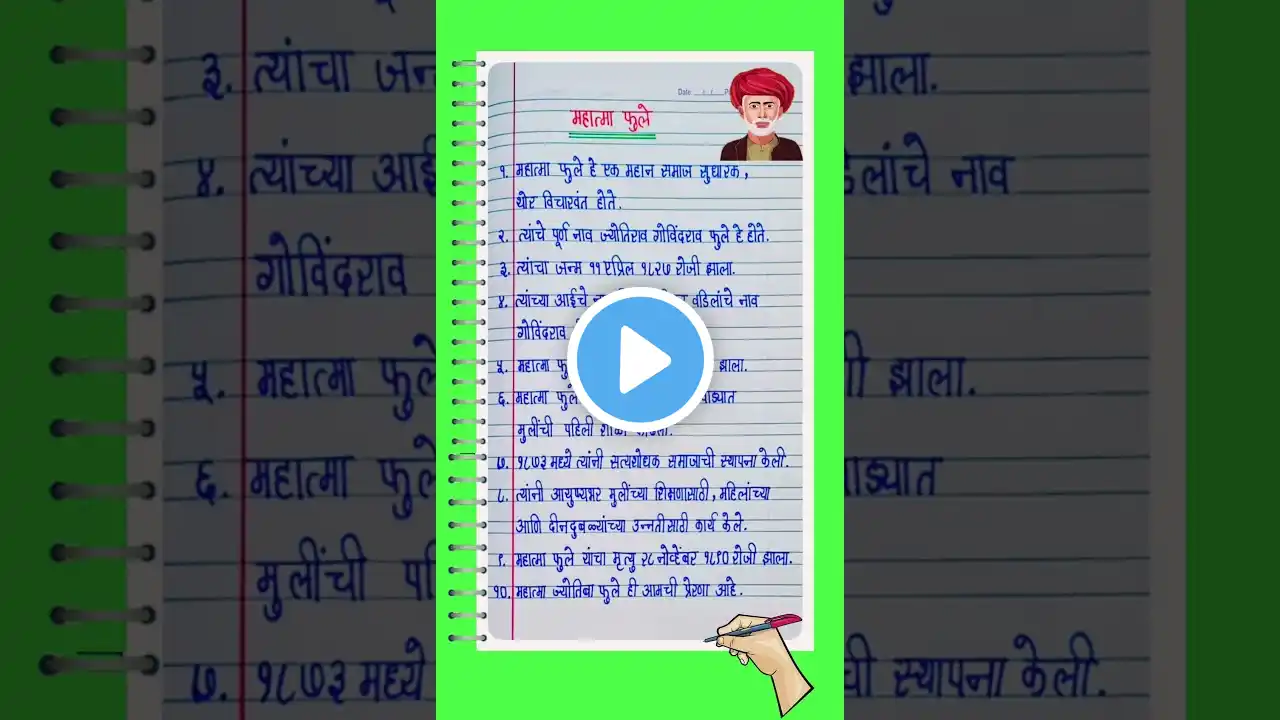 Date
महात्मा फुले
१. महात्मा फुले हे एक महान समाज सुधारक,
थोर विचारवंत होते.
२. त्यांचे पूर्ण नाव ज्योतिराव गोविंदराव फुले हे होते.
३. त्यांचा जन्म ११ एप्रिल १८२७ रोजी झाला.
४. त्यांच्या आईचे वडिलांचे नाव
गोविंदराव
५. महात्मा झाला.
६. महात्मा फुले
मुलींची पहिली
७. १८७३ मध्ये त्यांनी सत्यशोधक समाजाची स्थापना केली.
८. त्यांनी आयुष्यभर मुलींच्या शिक्षणासाठी, महिलांच्या
आणि दीनदुबळ्यांच्या उन्नतीसाठी कार्य केले.
९. महात्मा फुले यांचा मृत्यु २८ नोव्हेंबर १८९० रोजी झाला.
१०. महात्मा ज्योतिबा फुले ही आमची प्रेरणा आहे.